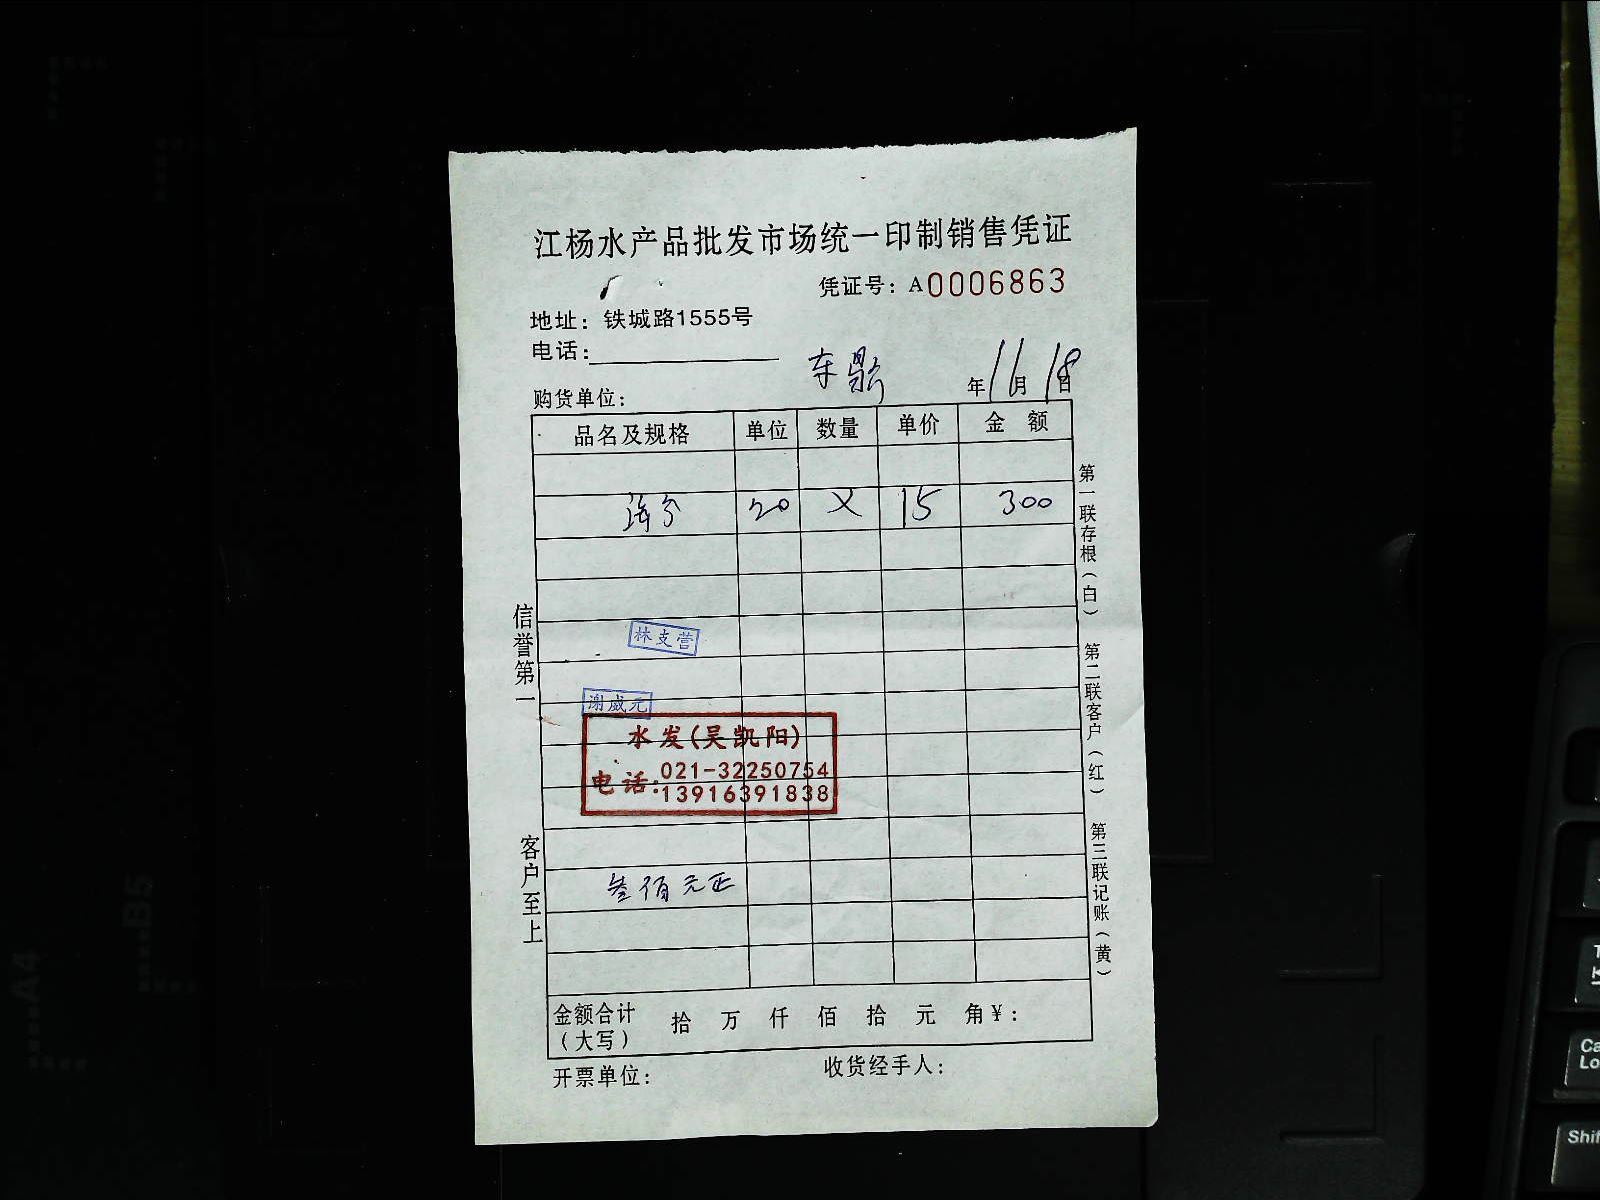 江杨水产品批发市场统一印制销售凭证
凭证号：A0006863
地址：铁城路1555号
电话：
购货单位：
年11月18日
品名及规格 单位 数量 单价 金 额
20 X 15 300
林支营
谢成元
水发(吴凯阳)
电话:021-32250754
13916391838
叁佰元正
金额合计（大写） 拾 万 仟 佰 拾 元 角￥：
开票单位：
收货经手人：
信誉第一
客户至上
第一联存根（白）
第二联客户（红）
第三联记账（黄）
A4
B5
Shif